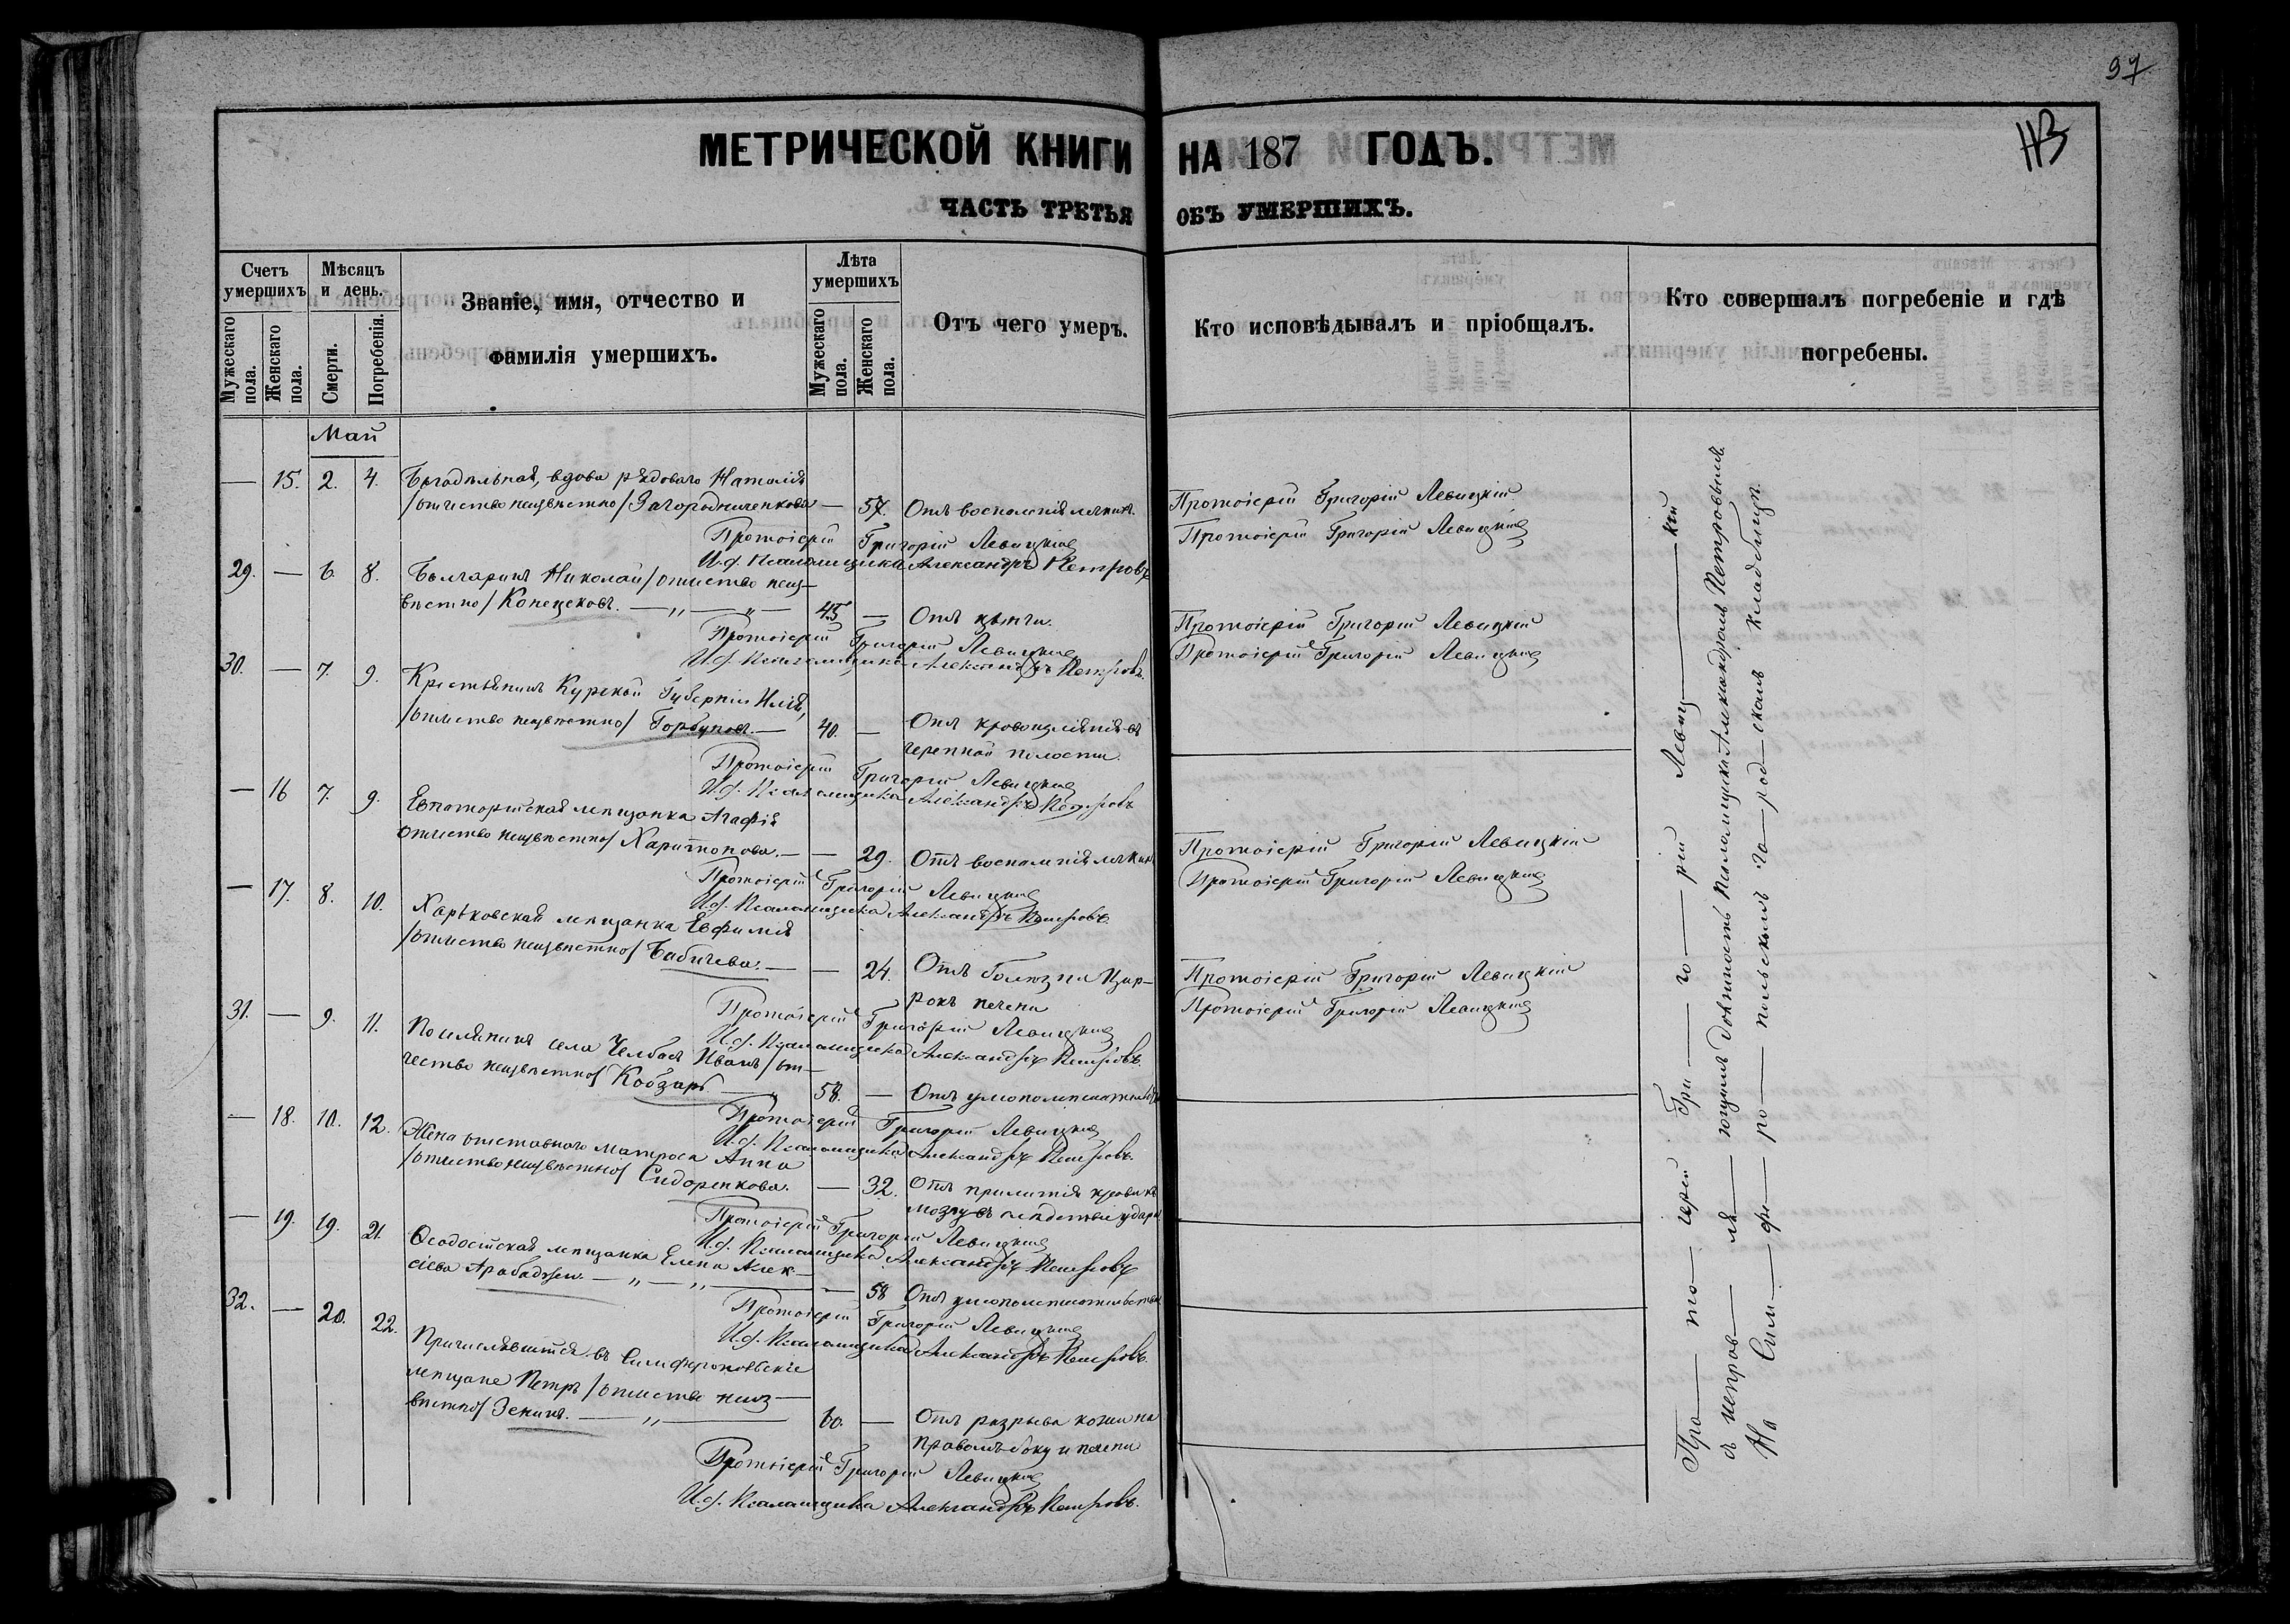 97
113
МЕТРИЧЕСКОЙ КНИГИ НА 187 ГОДЪ.
ЧАСТЬ ТРЕТЬЯ ОБЪ УМЕРШИХЪ.
Счетъ умершихъ
Мужескаго пола.
Женскаго пола.
Мѣсяцъ и день.
Смерти.
Погребенія.
Званіе, имя, отчество и
фамилія умершихъ.
Лѣта умершихъ
Мужескаго пола.
Женскаго пола.
Отъ чего умеръ.
Кто исповѣдывалъ и пріобщалъ.
Кто совершалъ погребеніе и гдѣ
погребены.
Май
— 15. 2. 4. Богадѣльная, вдова рядоваго Наталія
/отчество неизвѣстно/ Загородниченкова — 57. Отъ воспаленія легкихъ.
Протоіерей Григорій Левицкій
Протоіерей Григорій Левицкій
Протоіерей Григорій Левицкій
И.д. Псаломщика Александръ Петровъ
29. — 6. 8. Болгаринъ Николай /отчество неиз-
вѣстно/ Конецековъ. — „ — „ — 45 — Отъ цынги.
Протоіерей Григорій Левицкій
Протоіерей Григорій Левицкій
Протоіерей Григорій Левицкій
И.д. Псаломщика Александръ Петровъ.
30. — 7. 9. Крестьянинъ Курской Губерніи Илія,
/отчество неизвѣстно/ Горбуновъ. — 40. — Отъ кровоизліянія въ
черепной полости.
Протоіерей Григорій Левицкій
И.д. Псаломщика Александръ Петровъ
— 16 7. 9. Евпаторійская мещанка Агафія
/отчество неизвѣстно/ Харитонова. — — 29. Отъ воспаленія легкихъ
Протоіерей Григорій Левицкій
Протоіерей Григорій Левицкій
Протоіерей Григорій Левицкій
И.д. Псаломщика Александръ Петровъ
— 17. 8. 10. Харьковская мещанка Евфимія
/отчество неизвѣстно/ Бабичева. — — 24. Отъ болезни Цир-
розъ печени
Протоіерей Григорій Левицкій
Протоіерей Григорій Левицкій
Протоіерей Григорій Левицкій
И.д. Псаломщика Александръ Петровъ.
31. — 9. 11. Поселянинъ села Челбасъ Иванъ /от-
чество неизвѣстно/ Кобзарь — „ 58. — Отъ умопомѣшательства
Протоіерей Григорій Левицкій
И.д. Псаломщика Александръ Петровъ.
— 18. 10. 12. Жена отставного матроса Анна
/отчество неизвѣстно/ Сидоренкова. — 32. Отъ прилитія крови къ
мозгу въ слѣдствіе удара
Протоіерей Григорій Левицкій
И.д. Псаломщика Александръ Петровъ
— 19. 19. 21. Ѳеодосійская мещанка Елена Алек-
сіева Арабаджи. — „ — „ — — 58 Отъ умопомѣшательства
Протоіерей Григорій Левицкій
И.д. Псаломщика Александръ Петровъ.
32. — 20. 22. Причислявшійся въ Симферопольскіе
мещане Петръ /отчество неиз-
вѣстно/ Зенинъ. — „ — 60. — Отъ разрыва кожи на
правомъ боку и печени
Протоіерей Григорій Левицкій
И.д. Псаломщика Александръ Петровъ.
Про — то — іерей Гри — го — рій Левиц — кій
съ исправ — ля — ющимъ должность Псаломщика Александромъ Петровымъ
На Сим — фе — ро — польскомъ го — род — скомъ кладбищѣ.